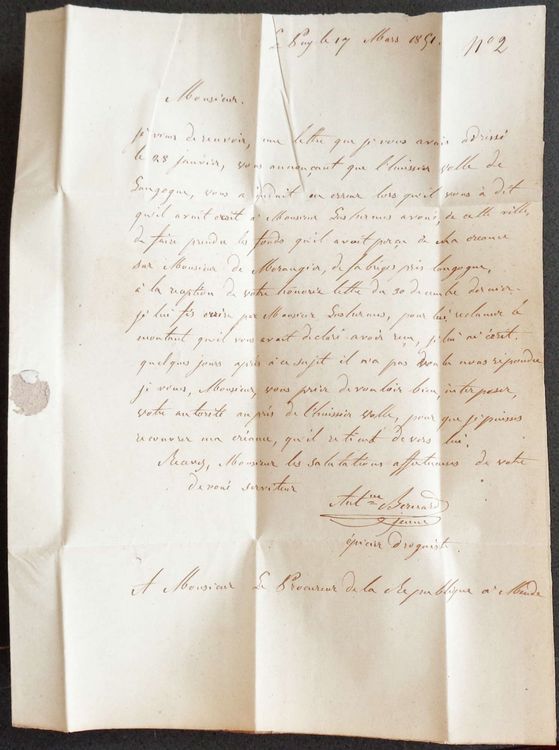 Le Puy le 17 Mars 1851. N° 2
Monsieur.
je vous de revoir, une lettre que je vous avais adressé
le 28 janvier, vous annonçant que l'huissier Volle de
Langogne, vous a induit en erreur lors qu'il vous à dit
qu'il avait écrit à Monsieur avoué, de cette ville,
de faire prendre les fonds qu'il avait perçu de Ma créance
sur Monsieur de Morangier, de fabrèges près langogne,
à la reception de votre honorée lettre du 30 decembre dernier
je lui fis écrire par Monsieur pour lui réclamer le
montant qu'il vous avait declaré avoir recu, je lui ai écrit,
quelques jours après à ce sujet il n'a pas voulu nous répondre
je vous, Monsieur, vous prier de vouloir bien, interposer,
votre autorité auprès de l'huissier Volle, pour que je puisse
recouvrer ma créance, qu'il retient devers lui.
Recevez, Monsieur les salutations affectueuses de votre
devoué serviteur
Jeune
épicier Droguiste
A Monsieur Le Procureur de la Republique à Mende